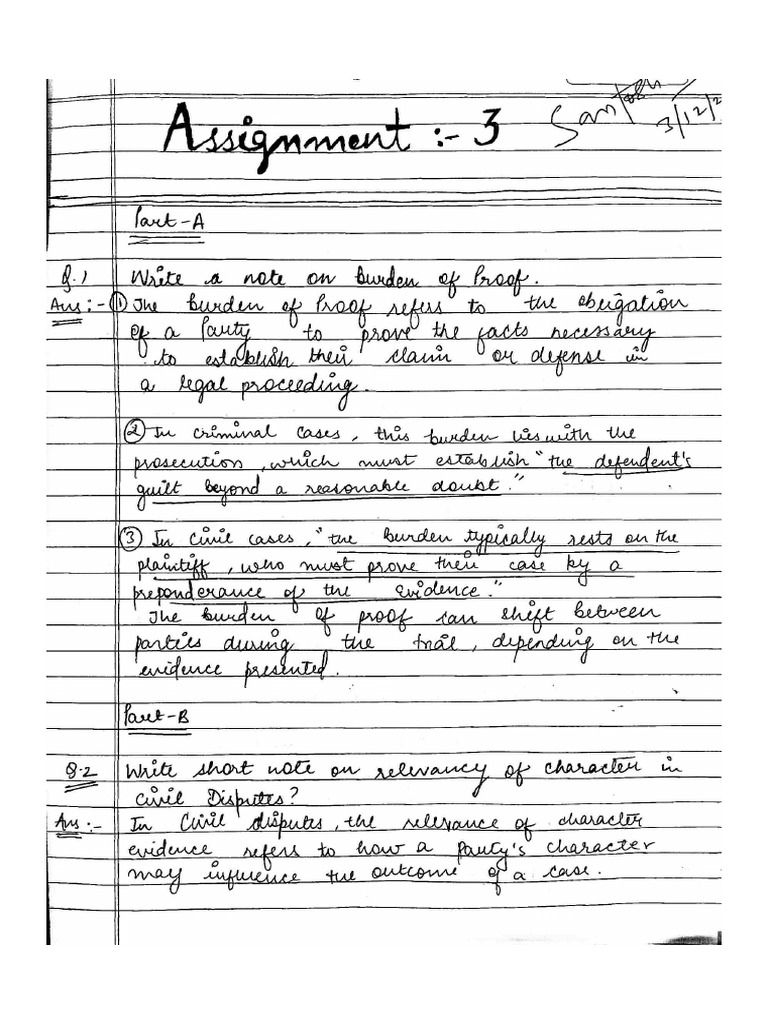 Assignment :- 3
3/12/2
Part-A
Q.1 Write a note on burden of Proof.
Ans :- (1) The burden of Proof refers to the obligation
of a Party to prove the facts necessary
to establish their claim or defense in
a legal proceeding.
(2) In criminal cases, this burden lies with the
prosecution, which must establish "the defendent's
guilt beyond a reasonable doubt."
(3) In Civil cases, "the burden typically rests on the
plaintiff, who must prove their case by a
preponderance of the evidence."
The burden of proof can shift between
parties during the trial, depending on the
evidence presented.
Part-B
Q.2 Write short note on relevancy of character in
civil Disputes?
Ans :- In Civil disputes, the relevance of character
evidence refers to how a party's character
may influence the outcome of a case.